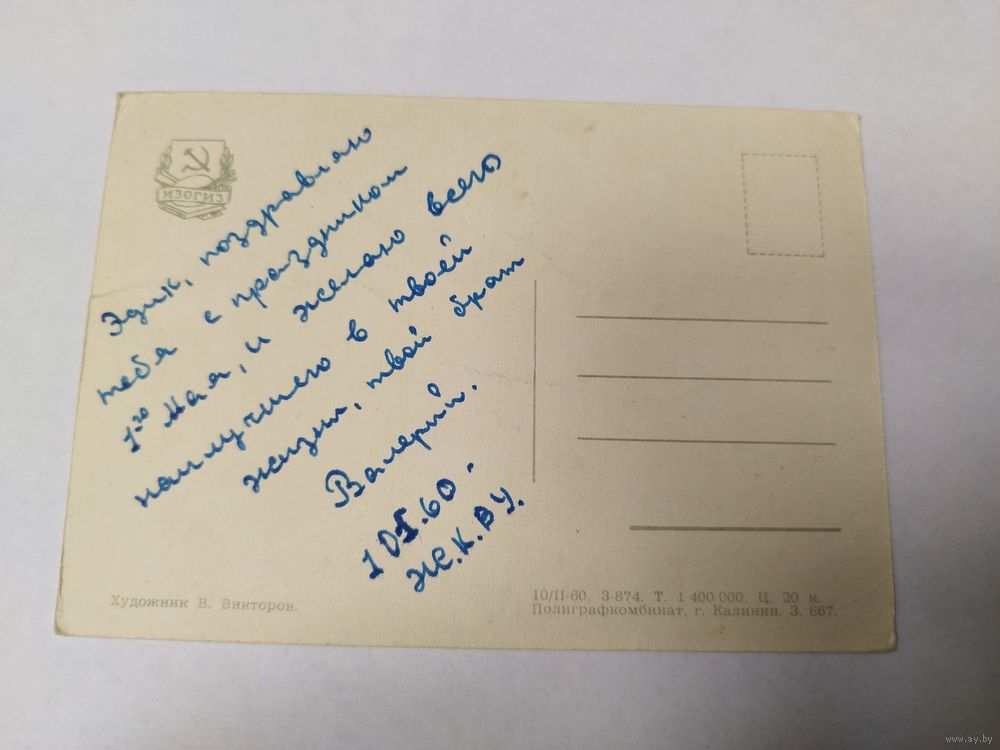 ИЗОГИЗ
Эдик, поздравляю
тебя с праздником
1го Мая, и желаю всего
наилучшего в твоей
жизни, твой брат
Валерий.
Ж.К.ВУ.
Художник В. Викторов.
10/II-60. З-874. Т. 1 400 000. Ц. 20 к.
Полиграфкомбинат, г. Калинин. З. 667.
www.ay.by